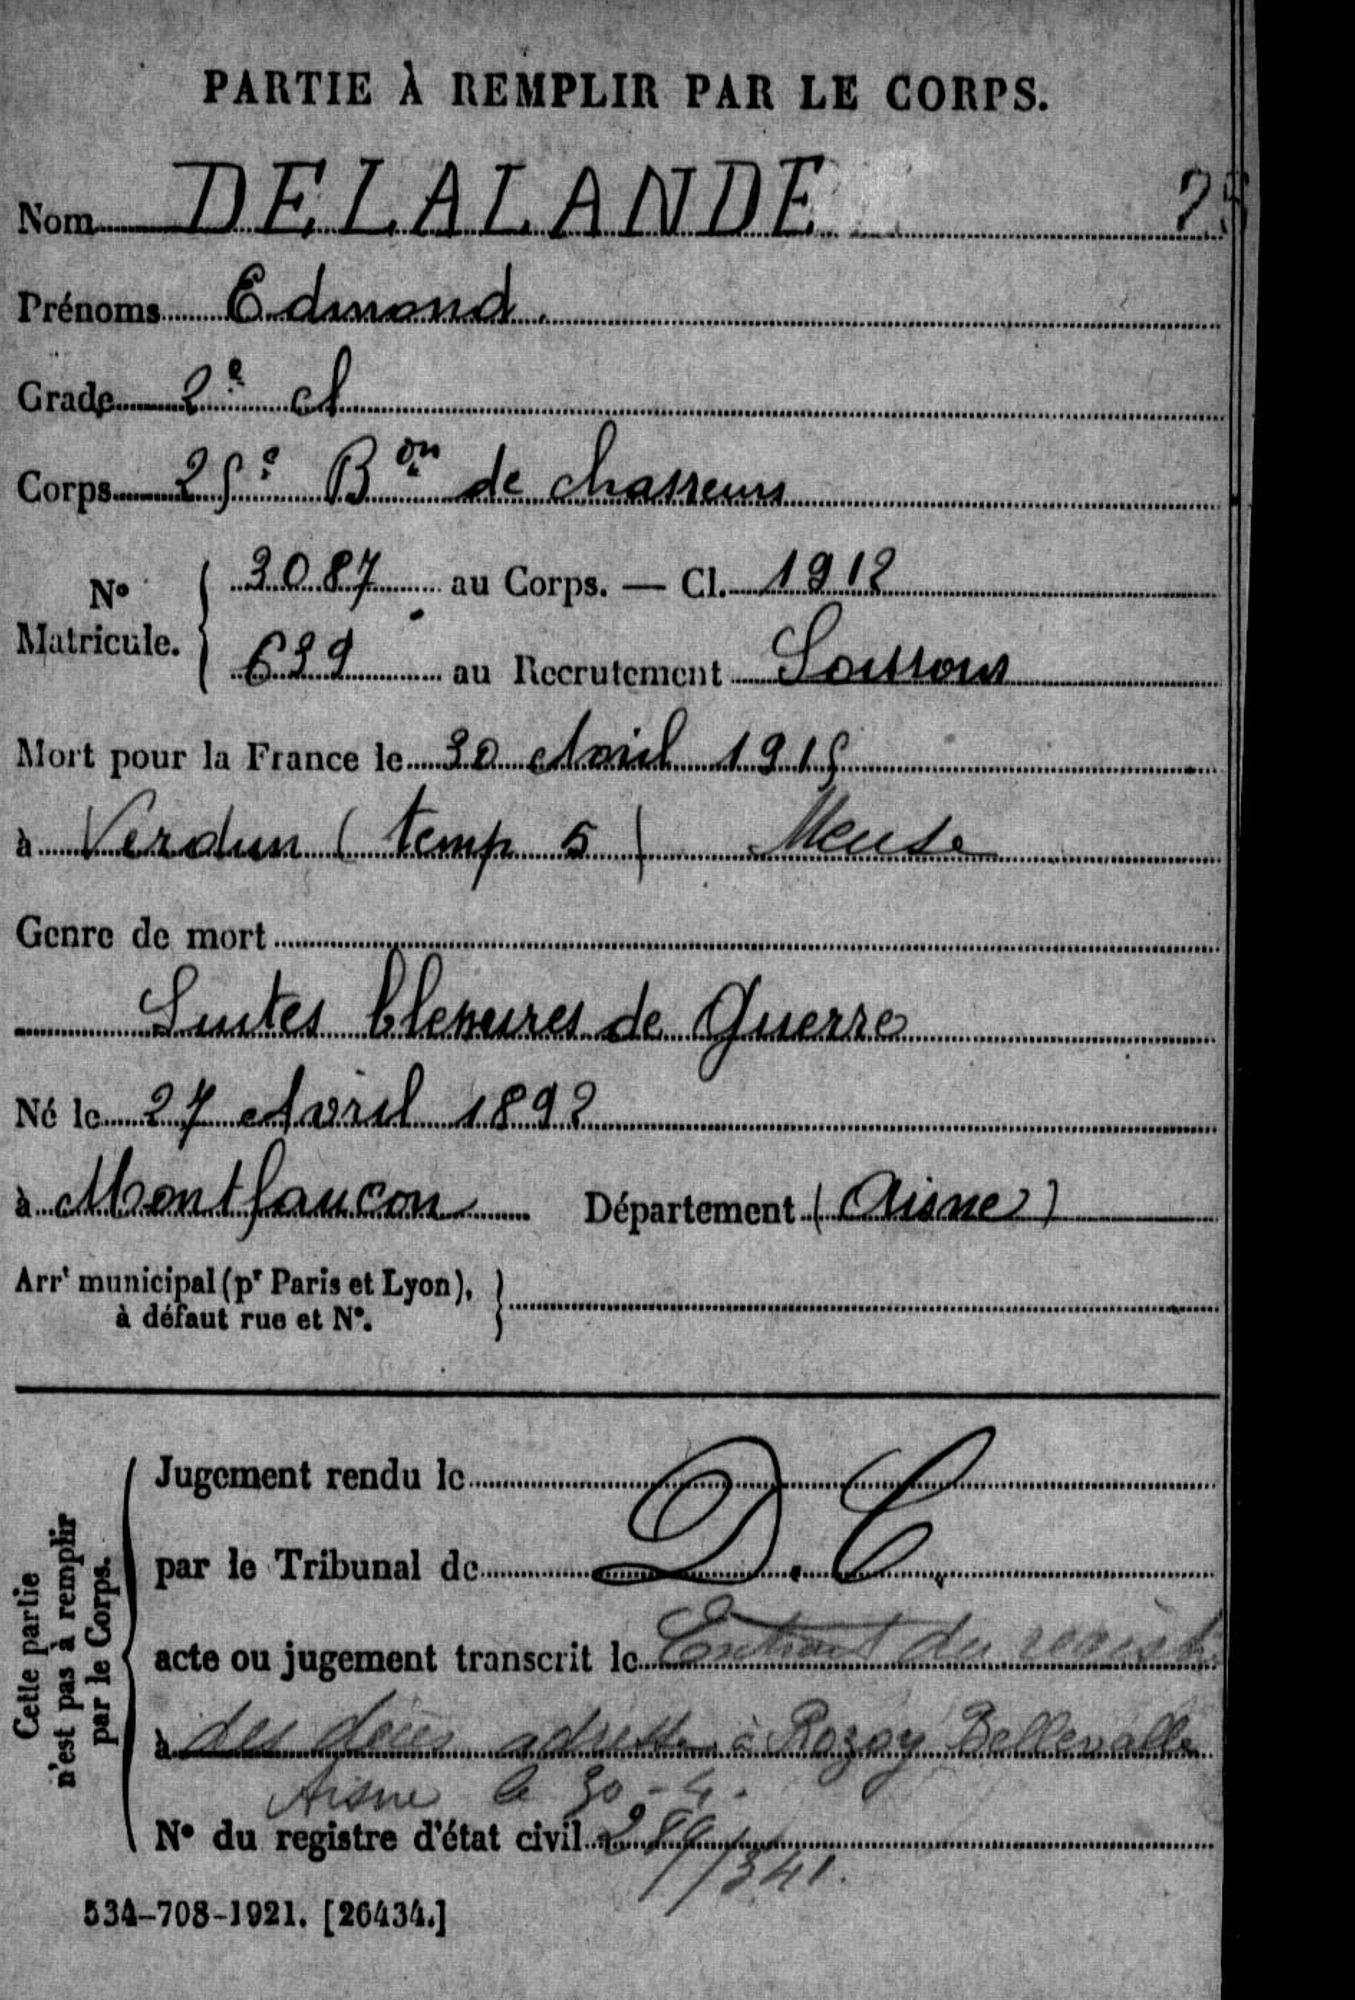 PARTIE À REMPLIR PAR LE CORPS.
Nom DELALANDE
Prénoms Edmond.
Grade 2e cl
Corps 25e Bon de chasseurs
No Matricule. 3087 au Corps. — Cl. 1912
639 au Recrutement Soissons
Mort pour la France le 30 Avril 1915
à Verdun (temp 5) Meuse
Genre de mort
Suites blessures de Guerre
Né le 27 Avril 1892
à Montfaucon Département (Aisne)
Arrt municipal (pr Paris et Lyon),
à défaut rue et No.
Cette partie
n'est pas à remplir
par le Corps.
Jugement rendu le
par le Tribunal de D.C.
acte ou jugement transcrit le Extrait du regist
à des décès adressé à Rozoy Bellevalle
Aisne le 30-4.
No du registre d'état civil 289/341.
534-708-1921. [26434.]